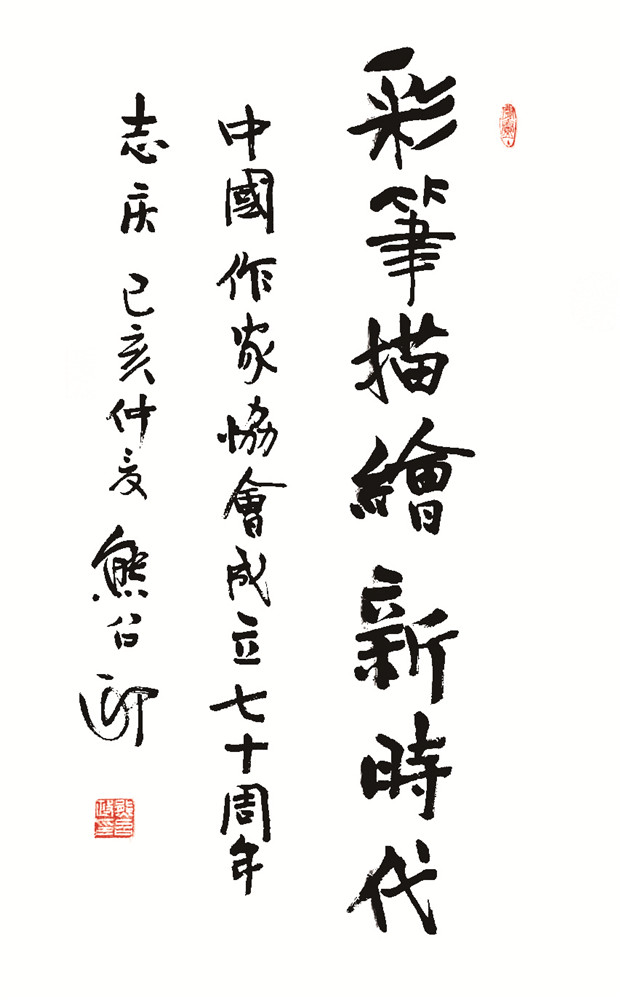 彩筆描繪新時代
中國作家協會成立七十周年
志庆 己亥仲夏 熊召政